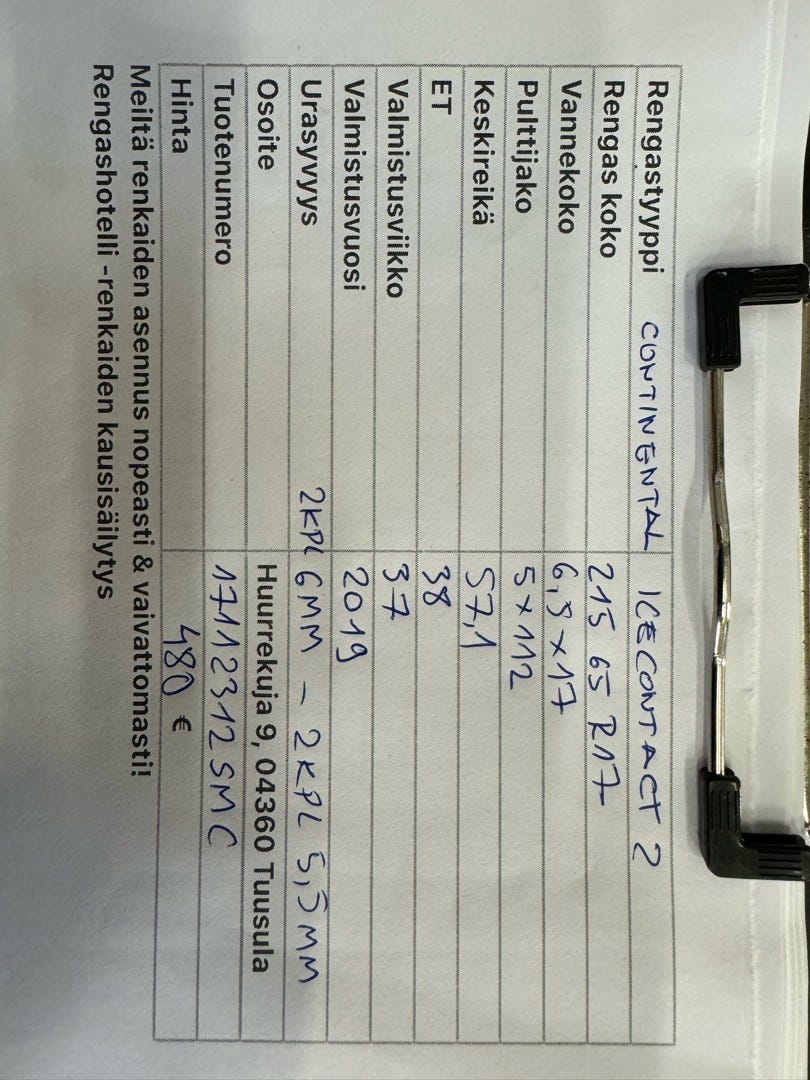 Rengastyyppi CONTINENTAL ICECONTACT 2
Rengas koko 215 65 R17
Vannekoko 6,5x17
Pulttijako 5x112
Keskireikä 57,1
ET 38
Valmistusviikko 37
Valmistusvuosi 2019
Urasyvyys 2KPL 6MM - 2KPL 5,5MM
Osoite Huurrekuja 9, 04360 Tuusula
Tuotenumero 1712312SMC
Hinta 480 €
Meiltä renkaiden asennus nopeasti & vaivattomasti!
Rengashotelli -renkaiden kausisäilytys